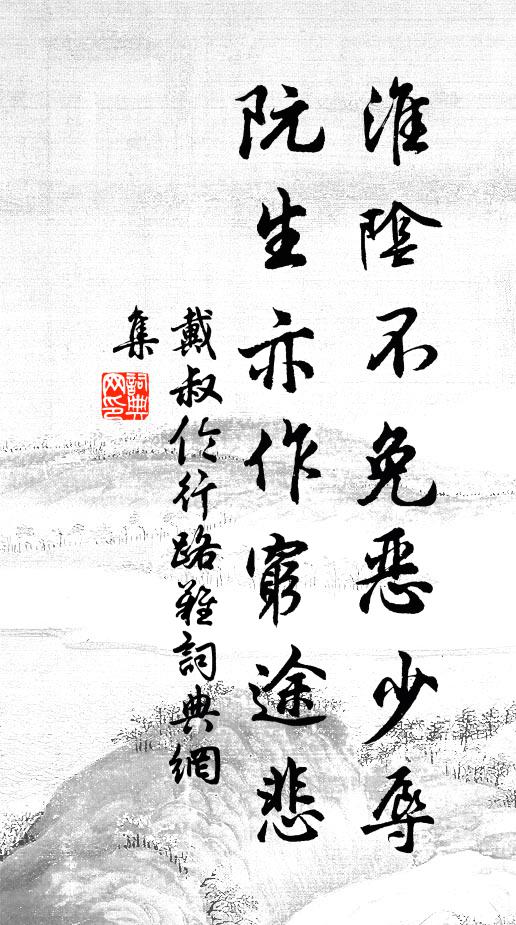 淮陰不免惡少辱
阮生亦作窮途悲
戴叔倫行路難詞典網
集
詞典
网印